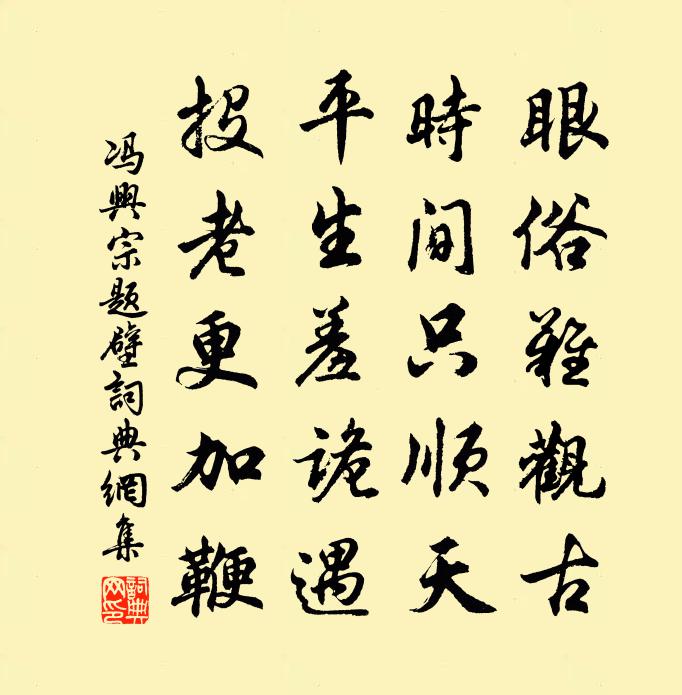 眼俗難觀古
時間只順天
平生羞詭遇
投老更加鞭
馮興宗題壁詞典網集
詞典網印